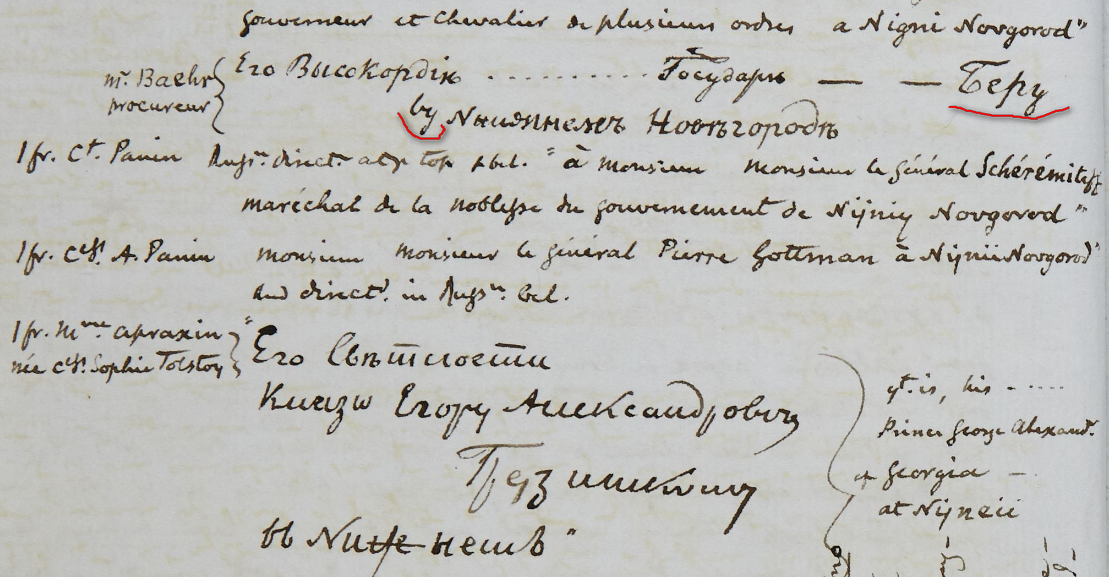 gouverneur et chevalier de plusieurs ordres a Nigni Novgorod"
mr. Baehr procureur } Его Высокордіе .......... Государю — — Беру
by Novъгородъ
1 fr. Ct. Panin Russn. directn at top bel. " à monsieur monsieur le général Schérémiteff
maréchal de la noblesse du gouvernement de Nijniy Novgorod"
1 fr. Css. A. Panin monsieur monsieur le général Pierre Gottman à Nijnii Novgorod"
and directd. in Russn. bel.
1 fr. Mme apraxin née css. Sophie Tolstoy } " Его Свѣтлости
Князю Егору Александровичу
Грузинскому
въ Nижнемъ"
yt. is, his .....
Prince George Alexandr.
of Georgia —
at Nijneii